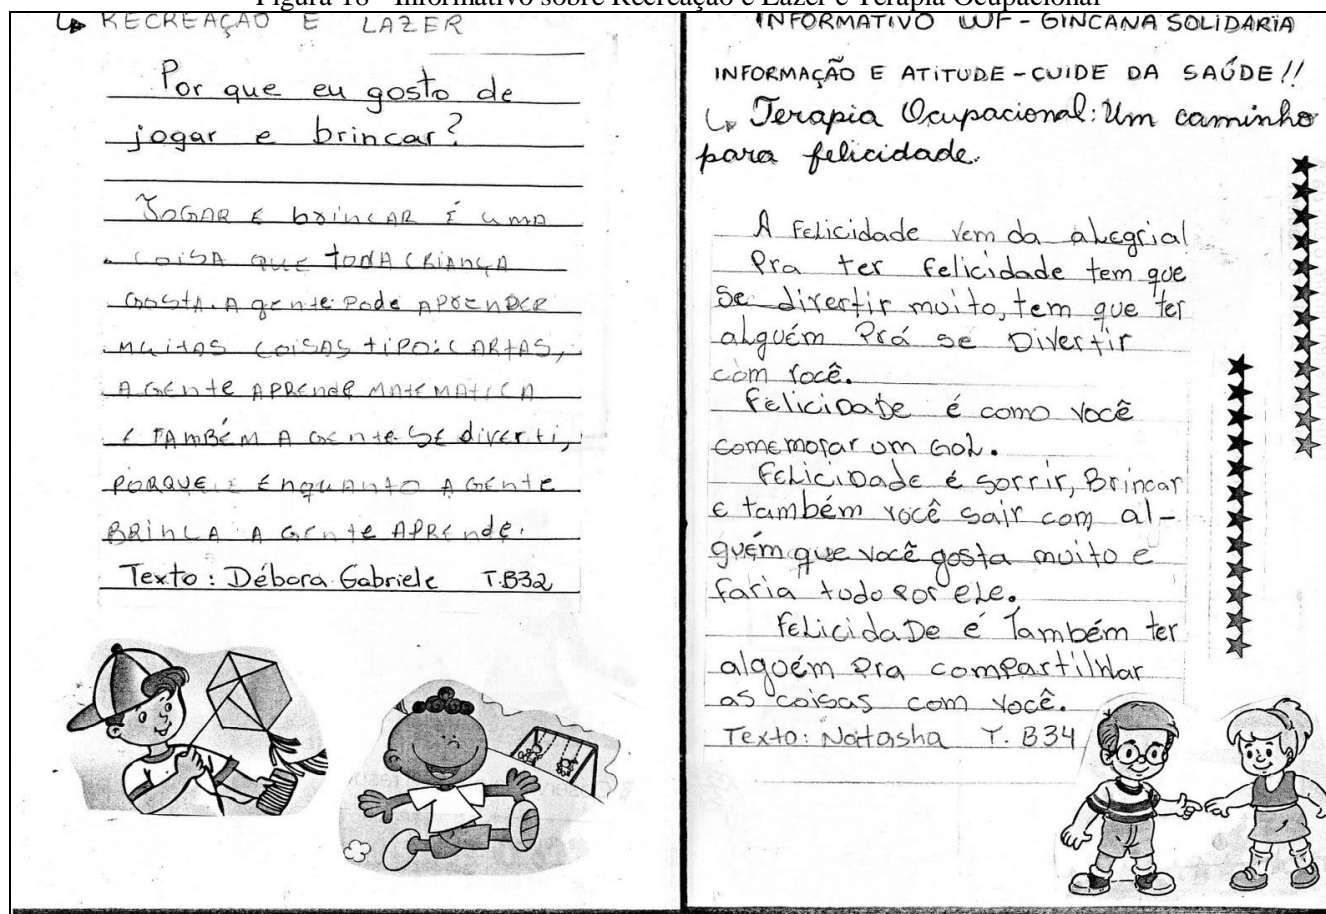 Figura 18 - Informativo sobre Recreação e Lazer e Terapia Ocupacional
RECREAÇÃO E LAZER
Por que eu gosto de
jogar e brincar?
JOGAR E brincAR É uma
coisA que TODA CRIANÇA
GOSTA. A gente Pode APRENDER
muitas coisas tipo: CARTAS,
A GENTE APRENDE MATEMATICA
E TAMBÉM A GENTE SE diverti,
PORQUE É ENQUANTO A GENTE
BRINCA A GENTE APRENDE.
Texto: Débora Gabriele T.B32
INFORMATIVO WF - GINCANA SOLIDÁRIA
INFORMAÇÃO E ATITUDE - CUIDE DA SAÚDE!!
Terapia Ocupacional: Um caminho
para felicidade.
A Felicidade vem da alegria!
Pra ter felicidade tem que
se divertir muito, tem que ter
alguém Prá se Divertir
com você.
Felicidade é como você
comemorar um Gol.
Felicidade é sorrir, Brincar
e também você sair com al-
guém que você gosta muito e
faria tudo por ele.
Felicidade é Também ter
alguém pra compartilhar
as coisas com você.
Texto: Natasha T. B34